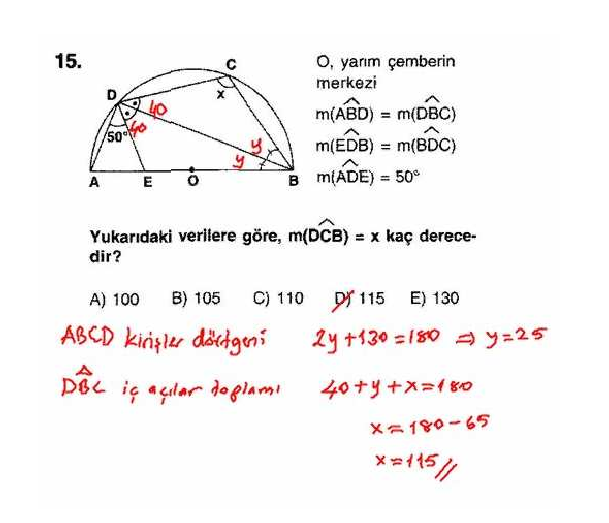 15.
O, yarım çemberin
merkezi
m(ABD) = m(DBC)
m(EDB) = m(BDC)
m(ADE) = 50°
C
D
x
40
50°
40
y
y
A
E
O
B
Yukarıdaki verilere göre, m(DCB) = x kaç derece-
dir?
A) 100 B) 105 C) 110 D) 115 E) 130
ABCD kirişler dörtgeni 2y+130=180 ⇒ y=25
DBC iç açılar toplamı 40+y+x=180
x=180-65
x=115//